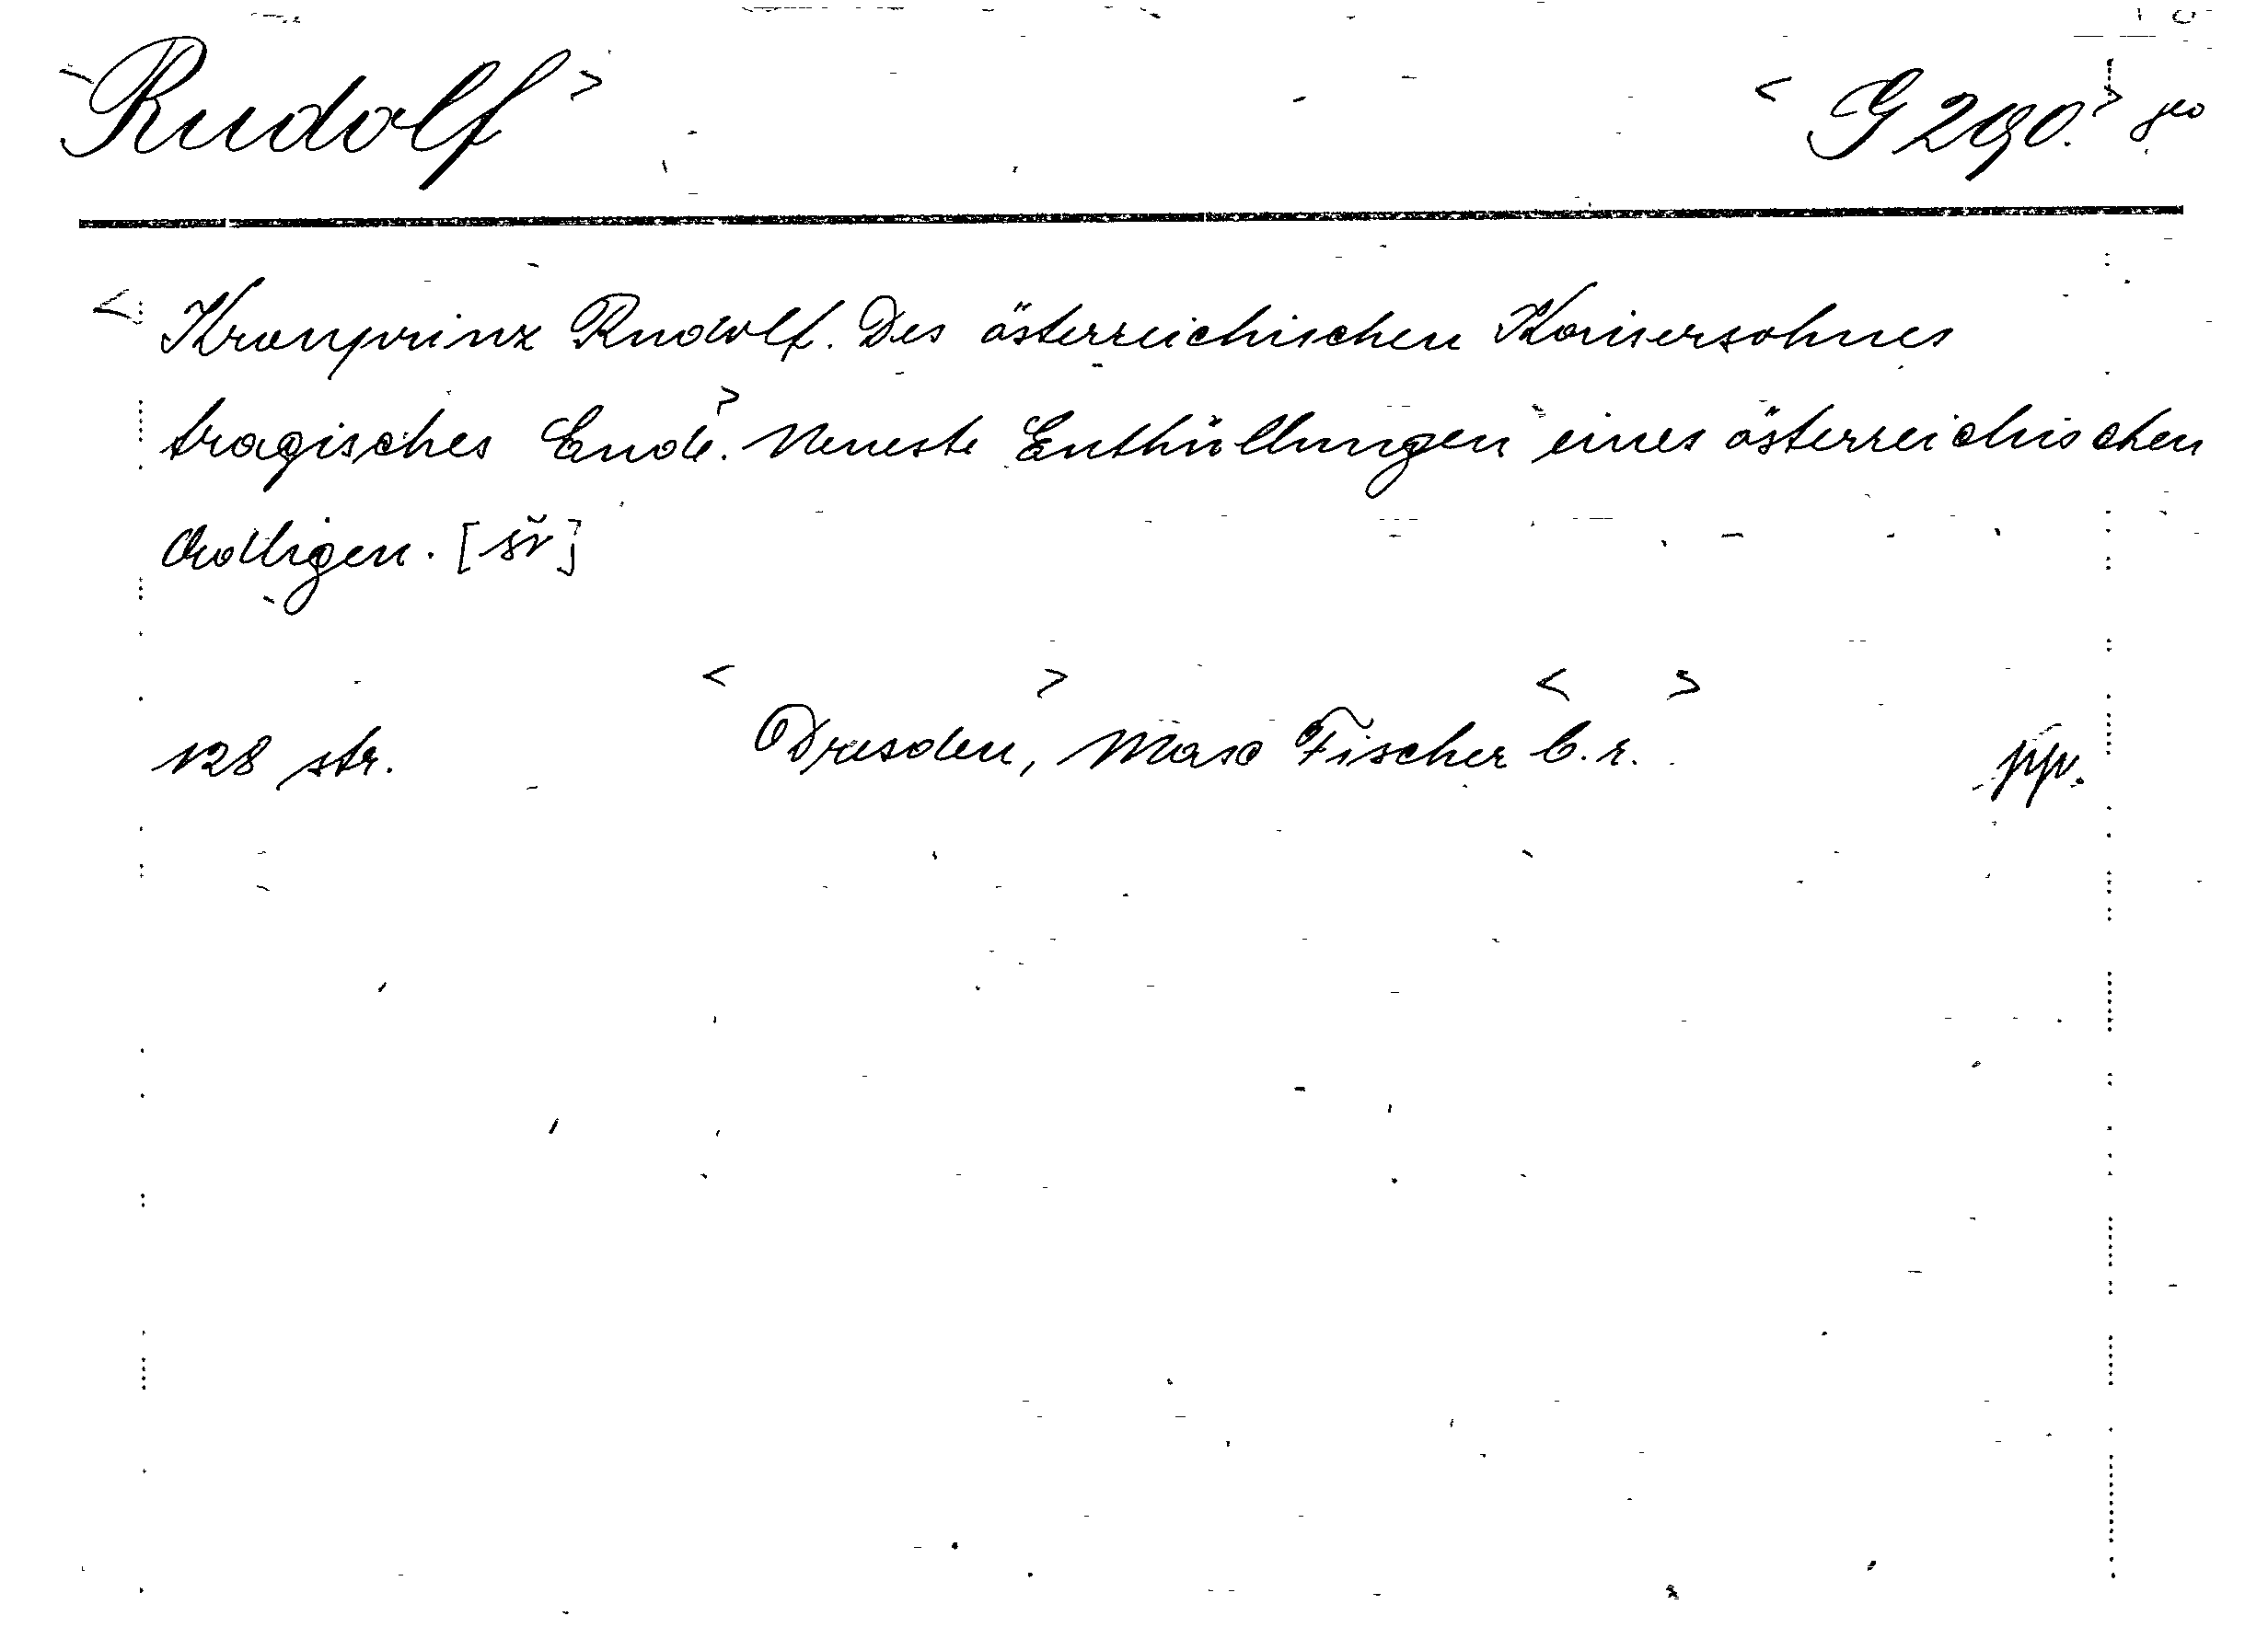 <Rudolf> <G 290.> geo
<Kronprinz Rudolf. Des österreichischen Kaisersohnes
tragisches Ende.> Neueste Enthüllungen eines österreichischen
Adligen. [šv]
128 str. <Dresden>, Max Fischer <b.r.>